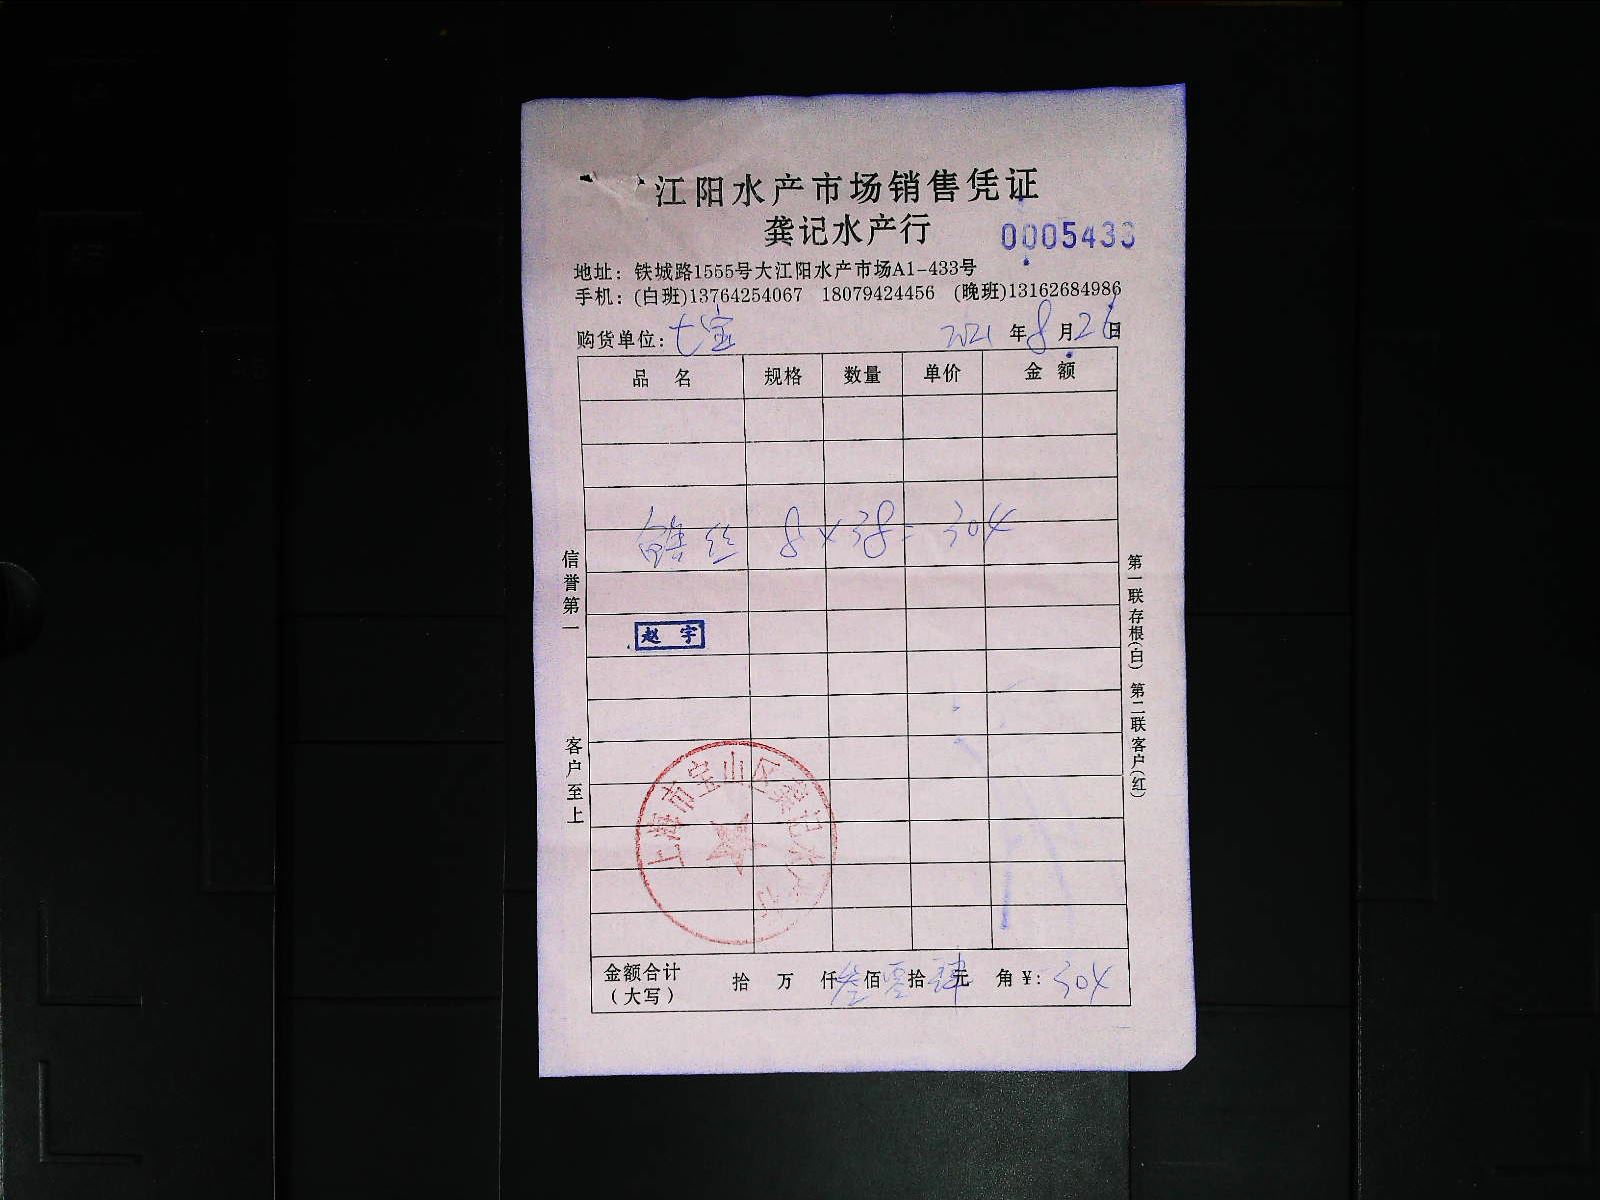 江阳水产市场销售凭证
龚记水产行 0005433
地址：铁城路1555号大江阳水产市场A1-433号
手机：(白班)13764254067 18079424456 (晚班)13162684986
购货单位：七宝 2021年8月26日
品名 规格 数量 单价 金额
鳝丝 8×38=304
赵宇
信誉第一 客户至上
第一联存根(白) 第二联客户(红)
上海市宝山区龚记水产行
金额合计 拾 万 仟叁佰零拾肆元 角￥:304
(大写)